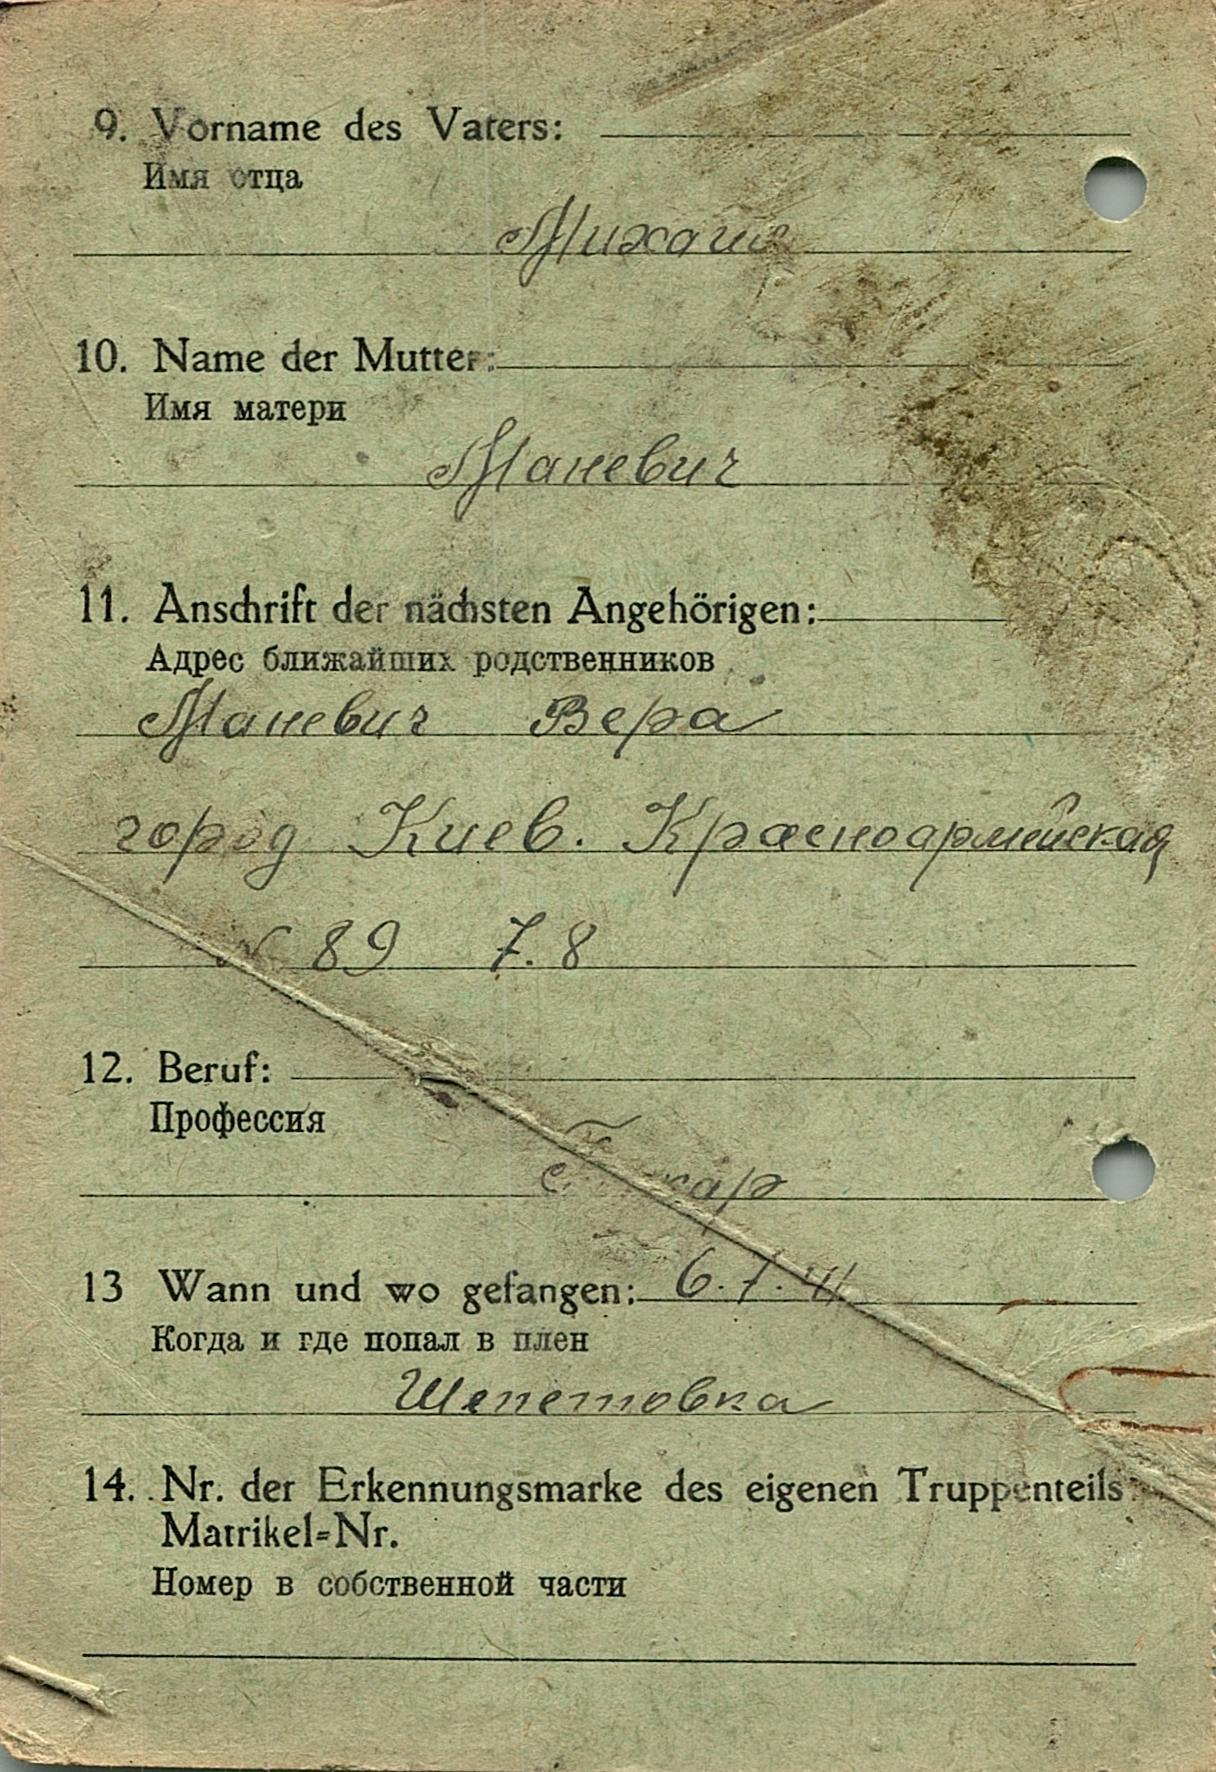 9. Vorname des Vaters:
Имя отца
Михаил
10. Name der Mutter:
Имя матери
Маневич
11. Anschrift der nächsten Angehörigen:
Адрес ближайших родственников
Маневич Вера
город Киев. Красноармейская
№ 89 7.8
12. Beruf:
Профессия
13 Wann und wo gefangen: 6.7.41
Когда и где попал в плен
Шепетовка
14. Nr. der Erkennungsmarke des eigenen Truppenteils
Matrikel=Nr.
Номер в собственной части